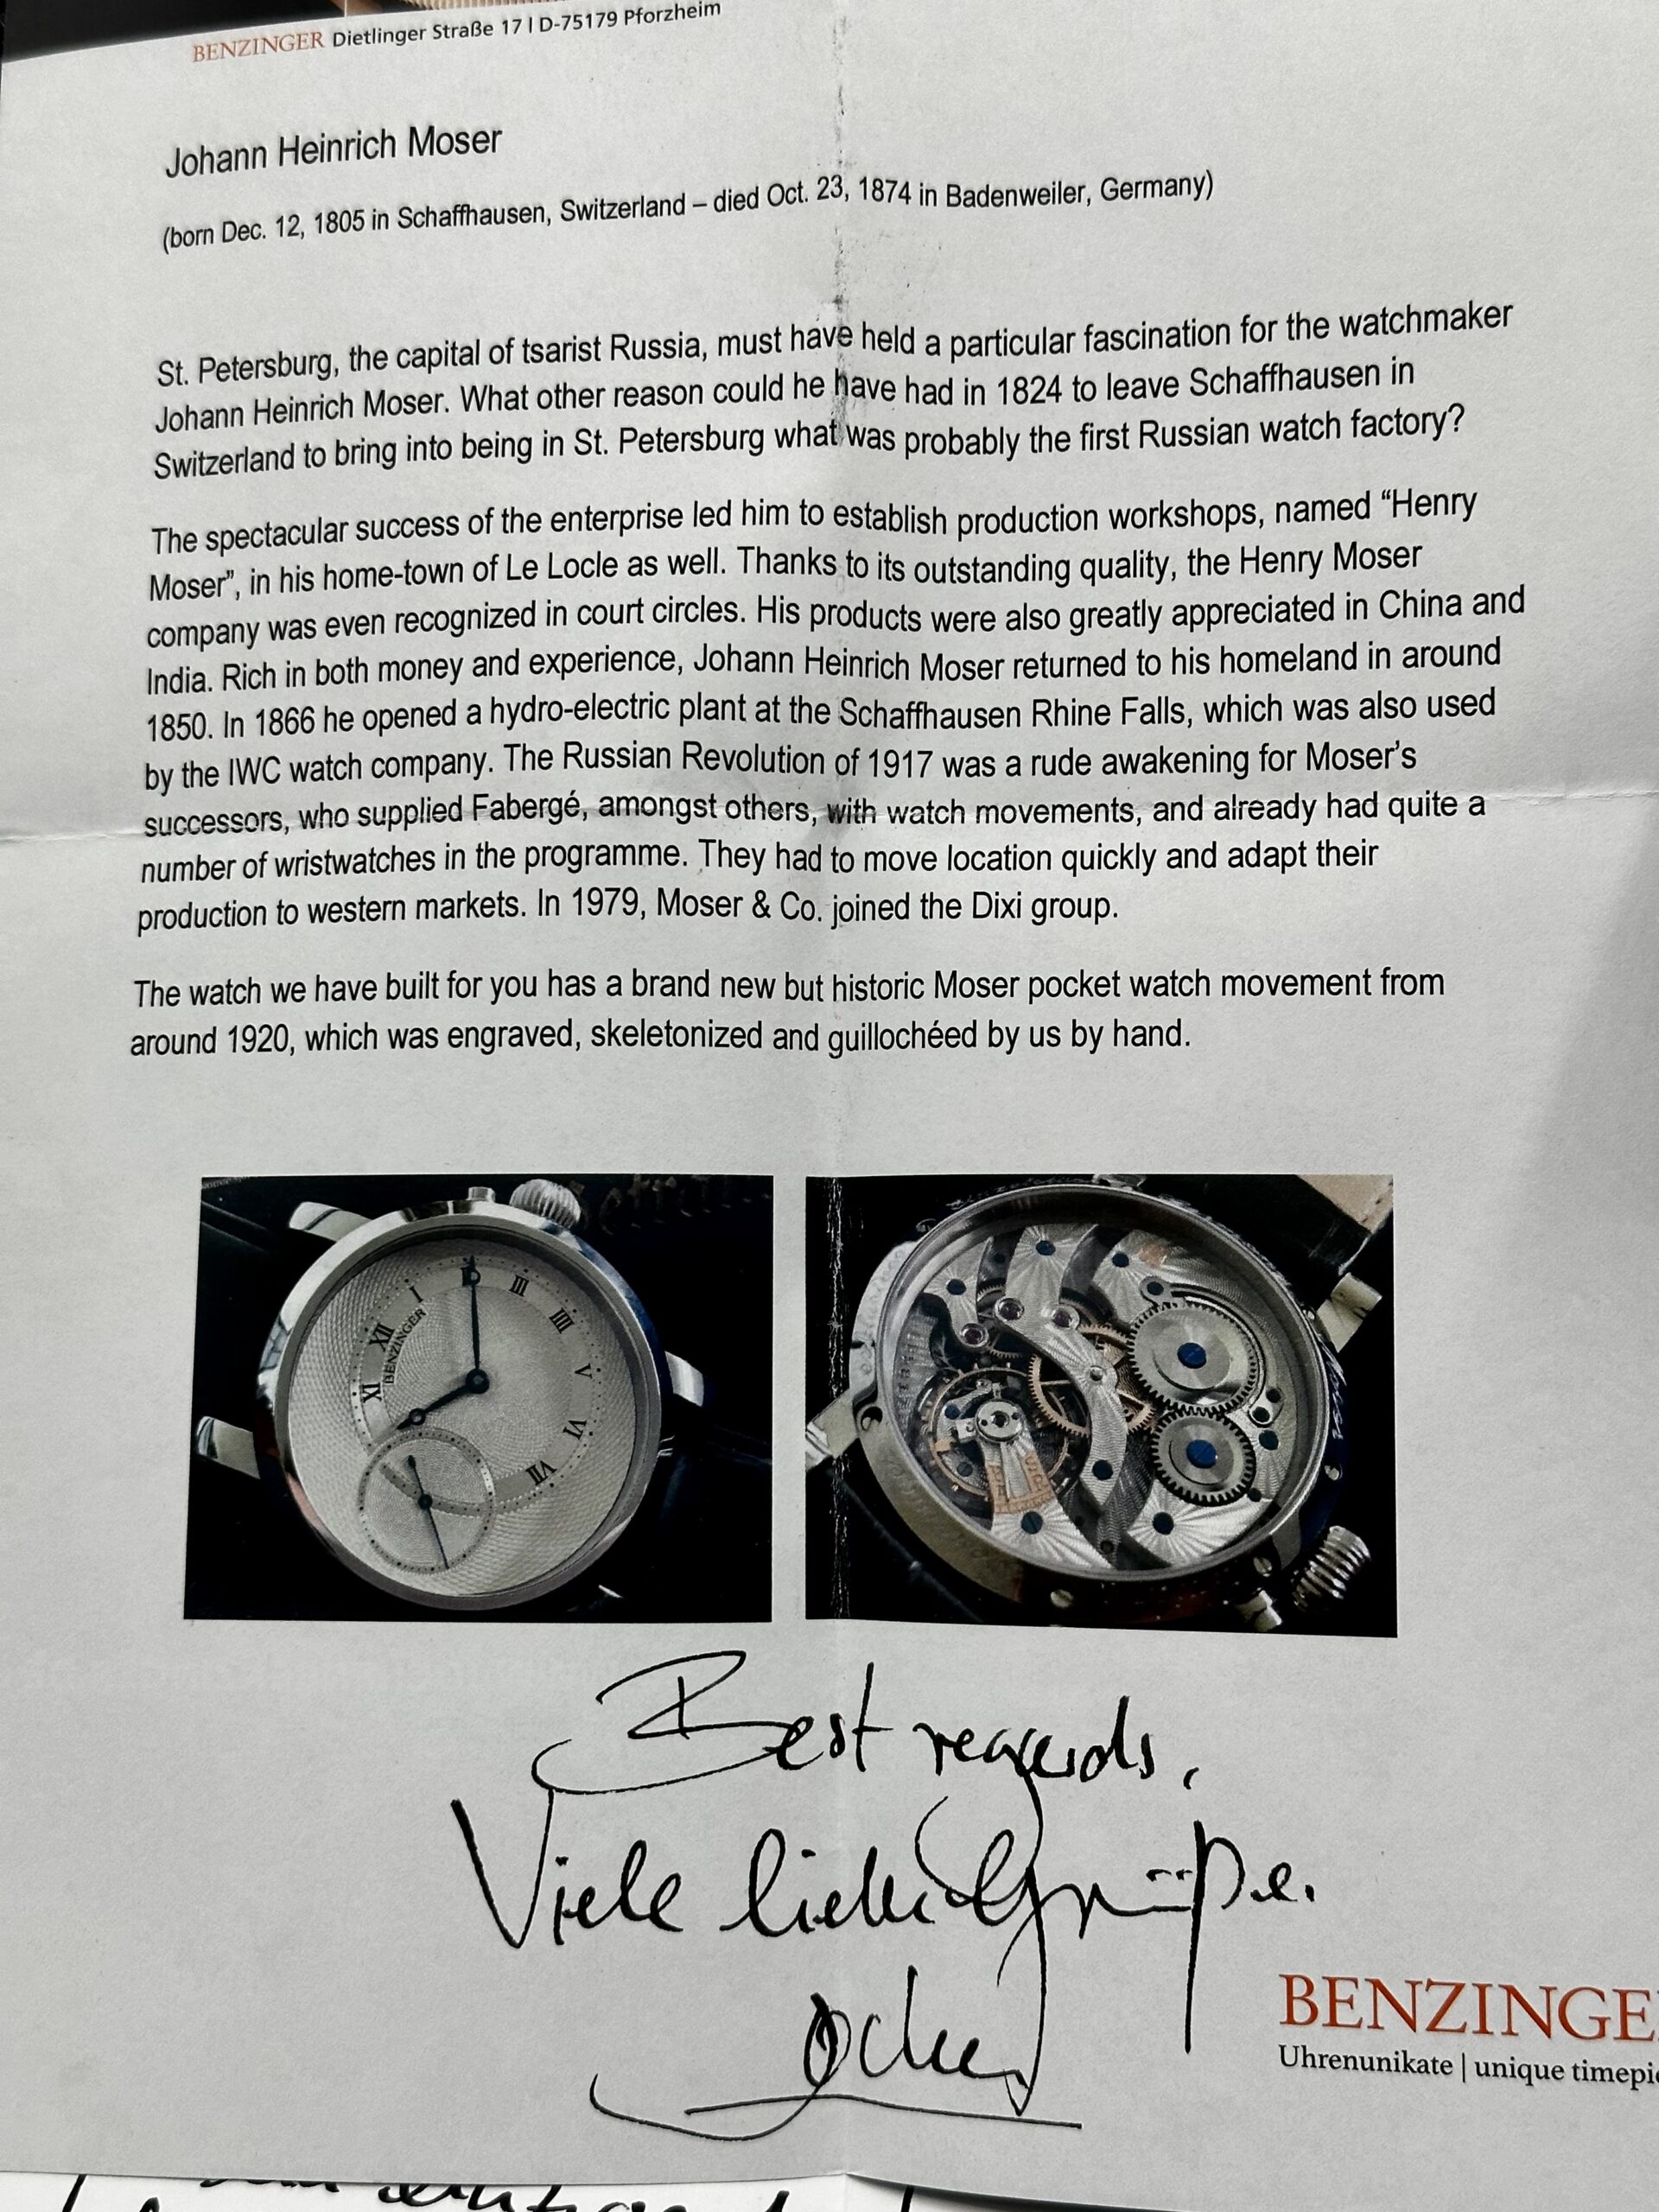 BENZINGER Dietlinger Straße 17 | D-75179 Pforzheim
Johann Heinrich Moser
(born Dec. 12, 1805 in Schaffhausen, Switzerland – died Oct. 23, 1874 in Badenweiler, Germany)
St. Petersburg, the capital of tsarist Russia, must have held a particular fascination for the watchmaker
Johann Heinrich Moser. What other reason could he have had in 1824 to leave Schaffhausen in
Switzerland to bring into being in St. Petersburg what was probably the first Russian watch factory?
The spectacular success of the enterprise led him to establish production workshops, named “Henry
Moser”, in his home-town of Le Locle as well. Thanks to its outstanding quality, the Henry Moser
company was even recognized in court circles. His products were also greatly appreciated in China and
India. Rich in both money and experience, Johann Heinrich Moser returned to his homeland in around
1850. In 1866 he opened a hydro-electric plant at the Schaffhausen Rhine Falls, which was also used
by the IWC watch company. The Russian Revolution of 1917 was a rude awakening for Moser’s
successors, who supplied Fabergé, amongst others, with watch movements, and already had quite a
number of wristwatches in the programme. They had to move location quickly and adapt their
production to western markets. In 1979, Moser & Co. joined the Dixi group.
The watch we have built for you has a brand new but historic Moser pocket watch movement from
around 1920, which was engraved, skeletonized and guillochéed by us by hand.
I III IIII V VI VII XI XII
BENZINGER
Best regards,
Viele liebe Grüße.
Jochen
BENZINGE
Uhrenunikate | unique timepie